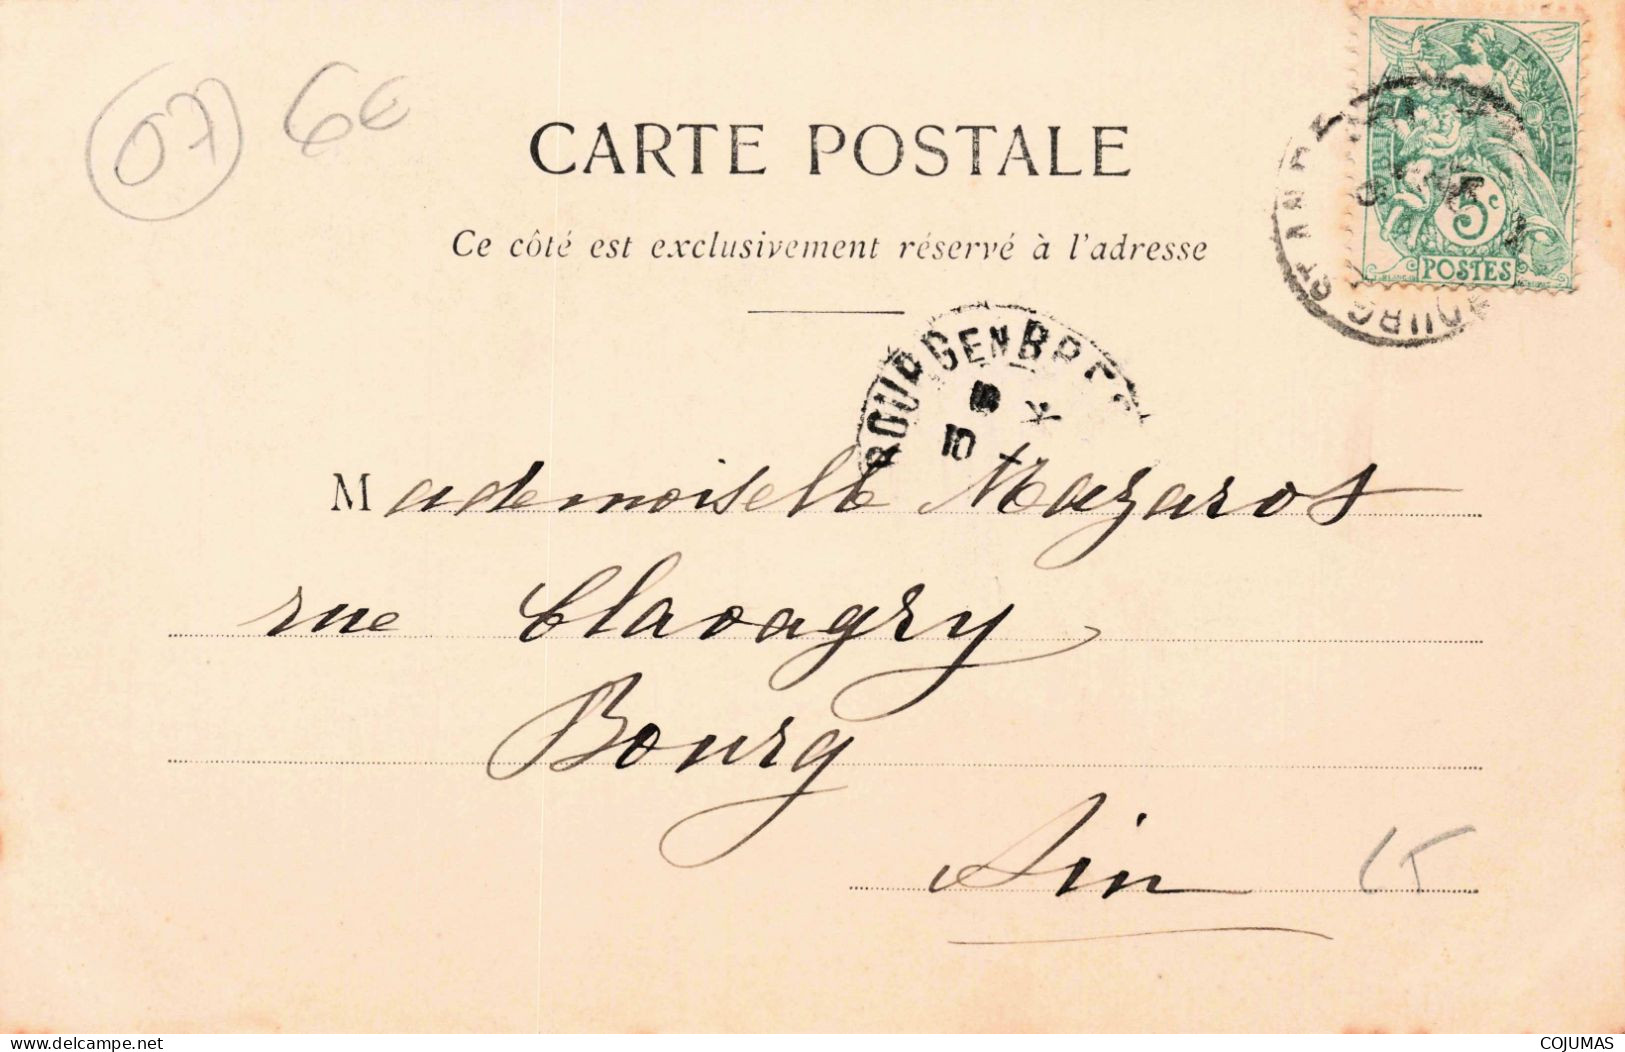 07 6€
CARTE POSTALE
Ce côté est exclusivement réservé à l'adresse
FRANÇAISE
5c
POSTES
BOURG EN BRE
10
BOURG ST ANDE
Mademoiselle Mazaros
rue Claoagry
Bourg
Ain
www.delcampe.net
COJUMAS